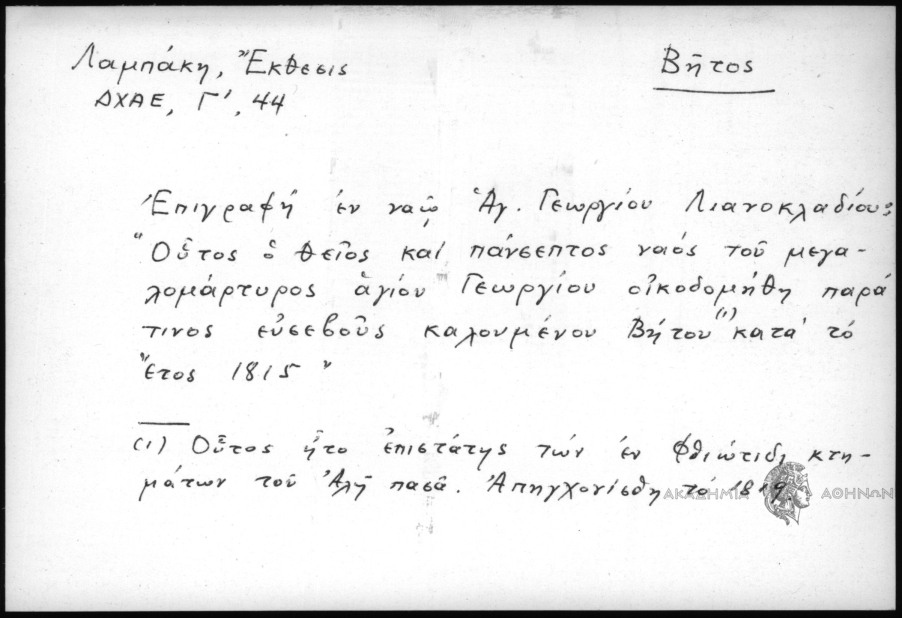 Λαμπάκη, Ἔκθεσις
ΔΧΑΕ, Γ', 44
Βῆτος
Ἐπιγραφή ἐν ναῷ Ἁγ. Γεωργίου Λιανοκλαδίου:
"Οὗτος ὁ θεῖος καί πάνσεπτος ναός τοῦ μεγα-
λομάρτυρος ἁγίου Γεωργίου οἰκοδομήθη παρά
τινος εὐσεβοῦς καλουμένου Βήτου (1) κατά τό
ἔτος 1815"
(1) Οὗτος ἦτο ἐπιστάτης τῶν ἐν Φθιώτιδι κτη-
μάτων τοῦ Ἀλῆ πασᾶ. Ἀπηγχονίσθη τό 1819.
ΑΚΑΔΗΜΙΑ ΑΘΗΝΩΝ